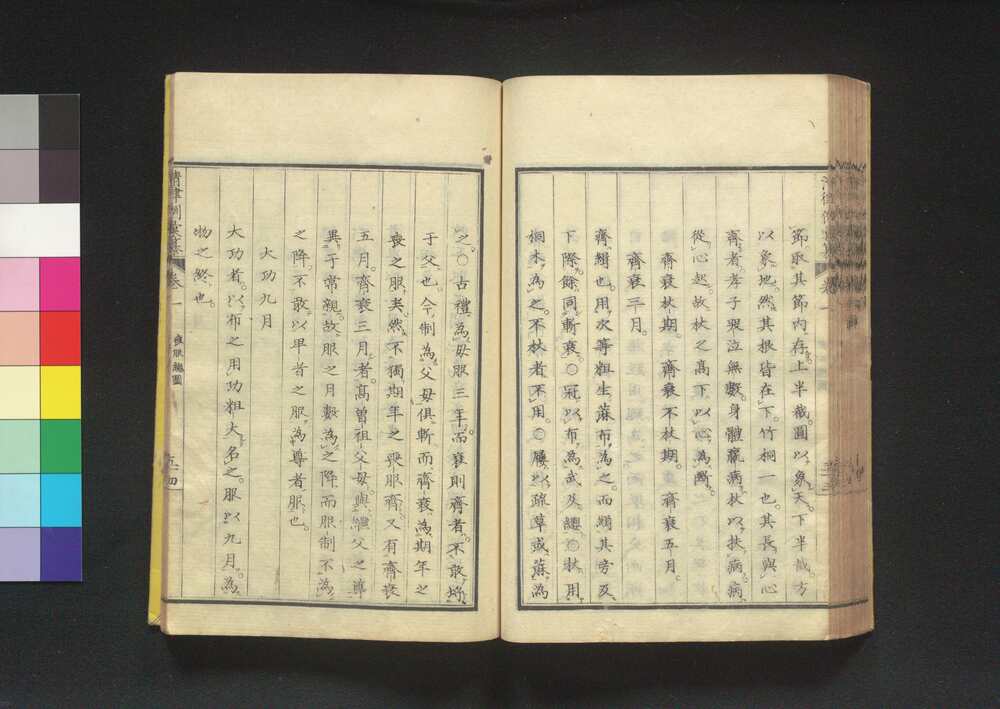 節。取其節内存上半截。圓以象天。下半截方
以象地。然其根皆在下。竹桐一也。其長與心
齊者。孝子哭泣無數。身體羸病。杖以扶病。病
從心起。故杖之高下。以心為斷。
齊衰杖期。齊衰不杖期。齊衰五月。
齊衰三月。
齊緝也。用次等粗生蔴布為之。而緝其旁及
下際。餘同斬衰。○冠以布為武及纓。○杖用
桐木為之。不杖者不用。○屨以疏草或蔴為
之。○古禮為母服三年。而衰則齊者。不敢
于父也。今制為父母俱斬而齊衰為期年之
喪之服矣。然不獨期年之喪服齊。又有齊衰
五月。齊衰三月者。高曾祖父母。與繼父之尊
異于常親。故服之月數為之降。而服制不為
之降。不敢以卑者之服為尊者服也。
大功九月
大功者。以布之用功粗大名之。服以九月。為
物之終也。
清律例彙纂 卷一 喪服總圖 五十四